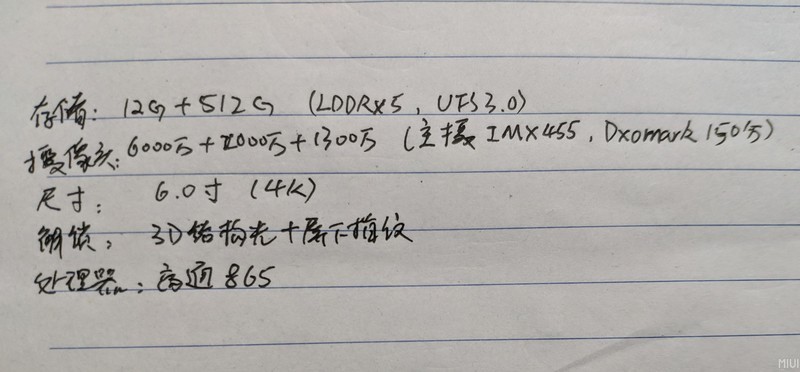 存储：12G+512G（LDDRX5，UFS3.0）
摄像头：6000万+2000万+1300万（主摄IMX455，Dxomark150分）
尺寸：6.0寸（4K）
解锁：3D结构光+屏下指纹
处理器：高通865
MIUI